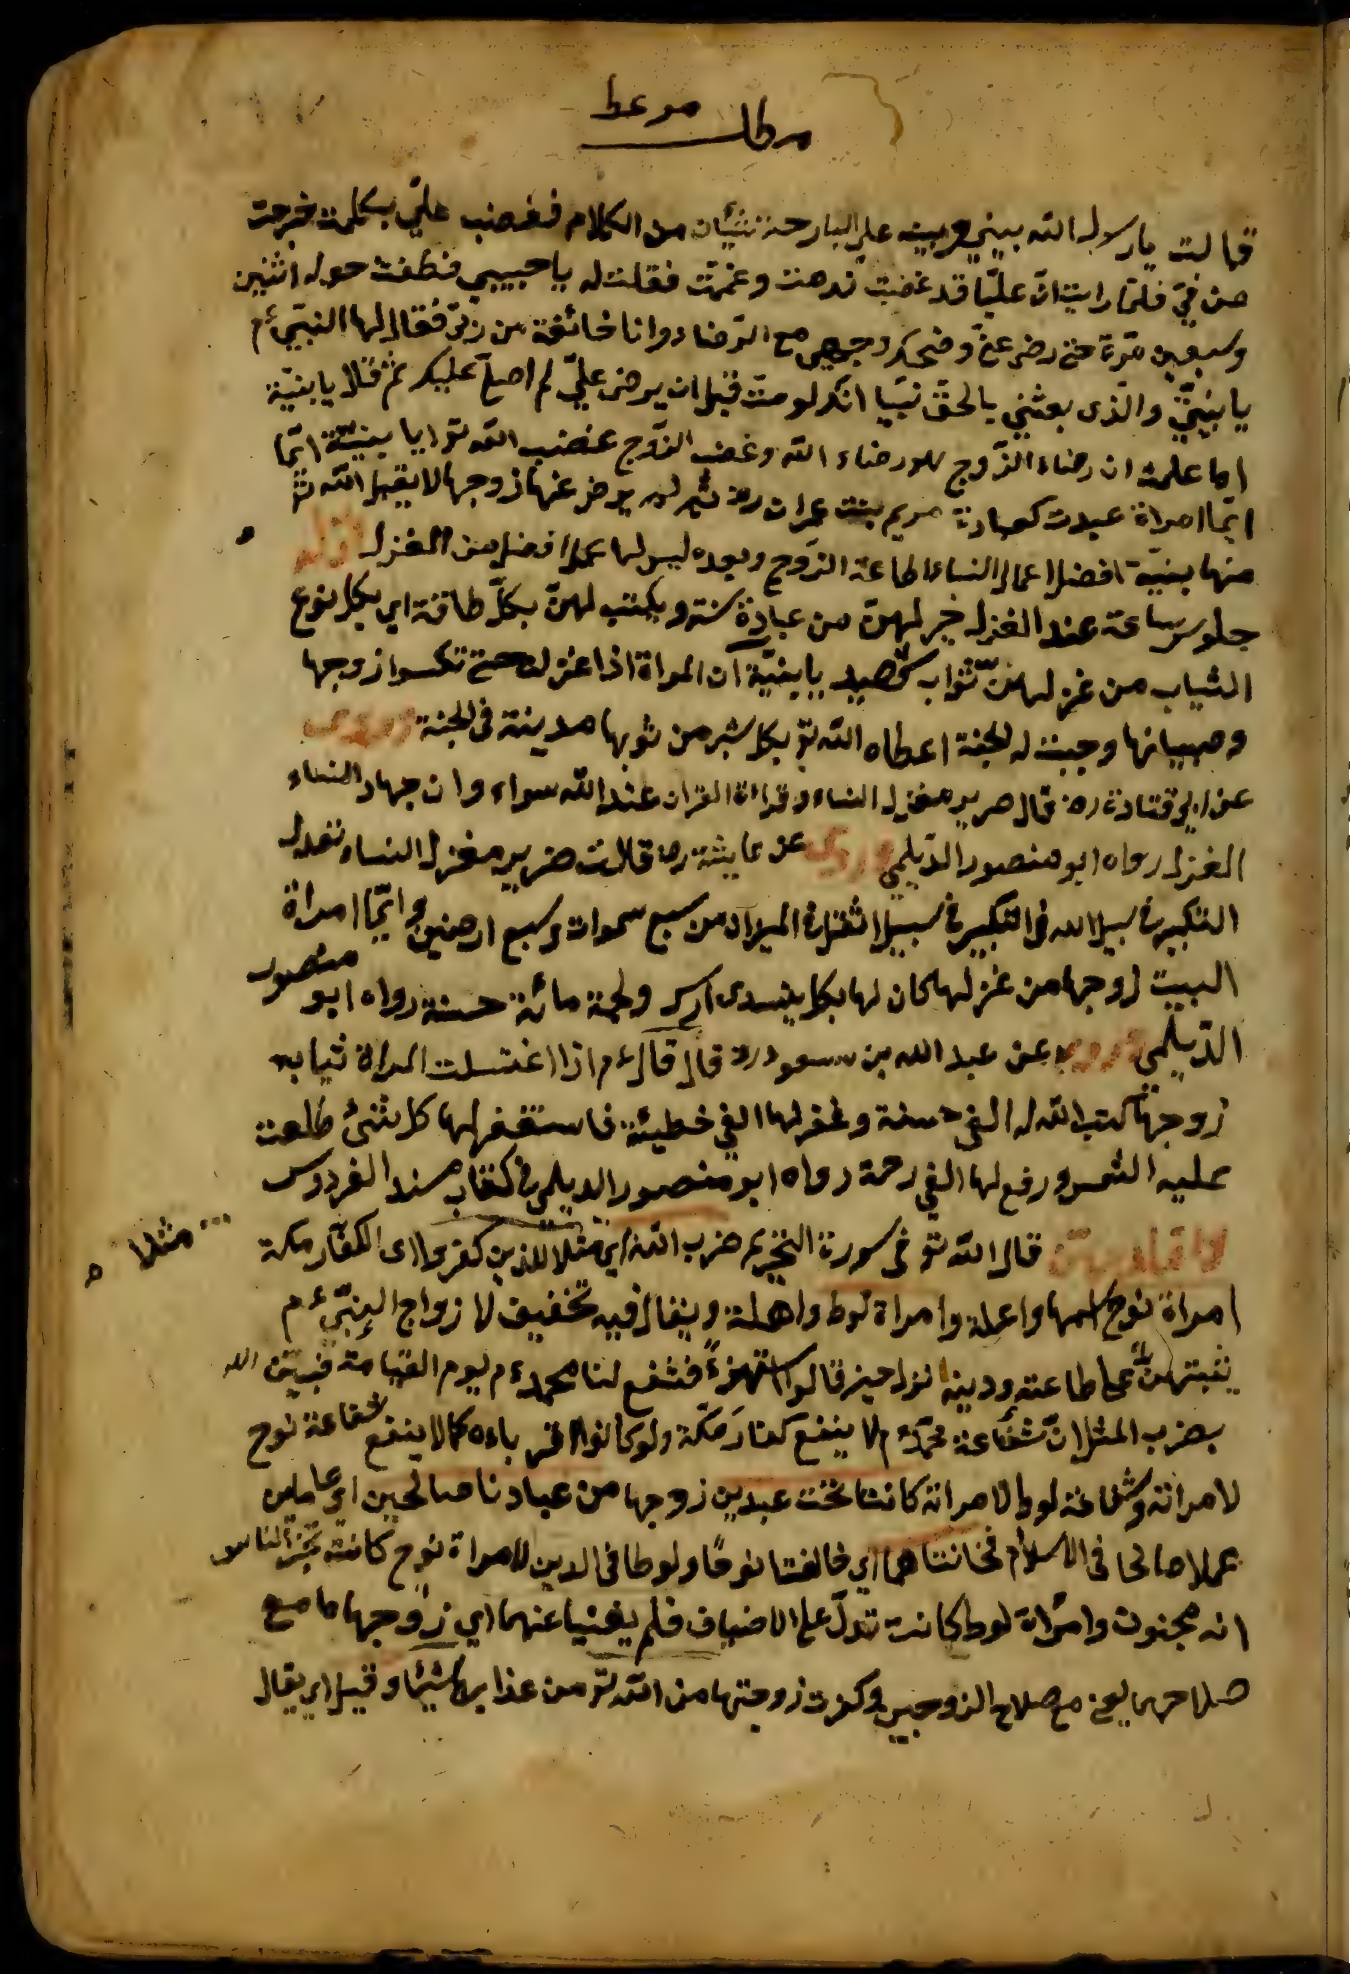 مطلب
موعظ
قالت يا رسول الله بيني وبين علي البارحة شيئان من الكلام فغضب علي بكلمة خرجت
من فيّ فلما رايت انّ عليّا قد غضب ندمت وغممت فقلت له يا حبيبي فطفت حوله اثنين
وسبعين مرّة حتى رضى عنّي وضحك وجهي مع الرضا وانا خائفة من ربّي فقال لها النبيّ ءم
يا بنيتي والذى بعثني بالحقّ نبيّا انك لو متّ قبل ان يرضى عليّ لم اصلّ عليك ثم قال يا بنيّة
اما علمت ان رضاء الزّوج هو رضاء الله وغضب الزّوج غضب الله تع يا بنيّة ايّما
ايّما امراة عبدت كعبادة مريم بنت عمران رض ثم لم يرض عنها زوجها لا يقبل الله تع
منها بنيّة افضل اعمال النساء اطاعة الزّوج وبعده ليس لها عمل افضل من الغزل
جلوس ساعة عند الغزل خير لهنّ من عبادة سنة ويكتب لهنّ بكلّ طاقة اي بكل نوع
الثياب من غزلهنّ ثواب شهيد يا بنيّة ان المراة اذا غزلت حتى تكسوا زوجها
وصبيانها وجبت له الجنة اعطاه الله تع بكل شبر من ثوبها مدينة فى الجنة وروى
عن ابي قتادة رض قال صرير مغزل النساء وقراءة القران عند الله سواء وان جهاد النساء
الغزل رواه ابو منصور الدّيلمي وروى عن عايشة رضا قالت صرير مغزل النساء تعدل
التكبير فى سبيل الله فى التكبير فى سبيل اثقل فى الميزان من سبع سموات وسبع ارضين وايّما امراة
البيت زوجها من غزلها كان لها بكل سدى ولحمة مائة حسنة رواه ابو منصور
الدّيلمي وروى عن عبد الله بن مسعود رض قال قال ءم اذا اغتسلت المراة ثياب
زوجها كتب الله له الفي حسنة وغفر لها الفي خطيئة فاستغفر لها كل شئ طلعت
عليه الشمس ورفع لها الفي رحمة رواه ابو منصور الديلمي فى كتاب مسند الفردوس
قال الله تع فى سورة التحريم ضرب الله اي مثلا للذين كفروا اى الكفار مكة
مثلا
امراة نوح اسمها واعلة وامراة لوط واهلة ويقال فيه تخفيف لازواج النبيّ ءم
يثبتهنّ على طاعته ودينه نزل حين قالوا استهزءً فشفع لنا محمد ءم يوم القيامة فبيّن الله
بضرب المثل انّ شفاعة محمّد ءم لا ينفع كفار مكّة ولو كانوا اقرباءه كما لا ينفع شفاعة نوح
لامراته وشفاعة لوط لامراته كانتا تحت عبدين زوجها من عبادنا صالحين اي عاملين
عملا صالحا فى الاسلام فخانتاهما اي خالفتا نوحًا ولوطا فى الدين لامراة نوح كانت تخبر الناس
انه مجنون وامراة لوط كانت تدلّ على الاضياف فلم يغنيا عنهما اي زوجهما مع
صلاحهما يعنى مع صلاح الزوجين وكفرت زوجتهما من الله تع من عذابه شيئًا وقيل اي يقال